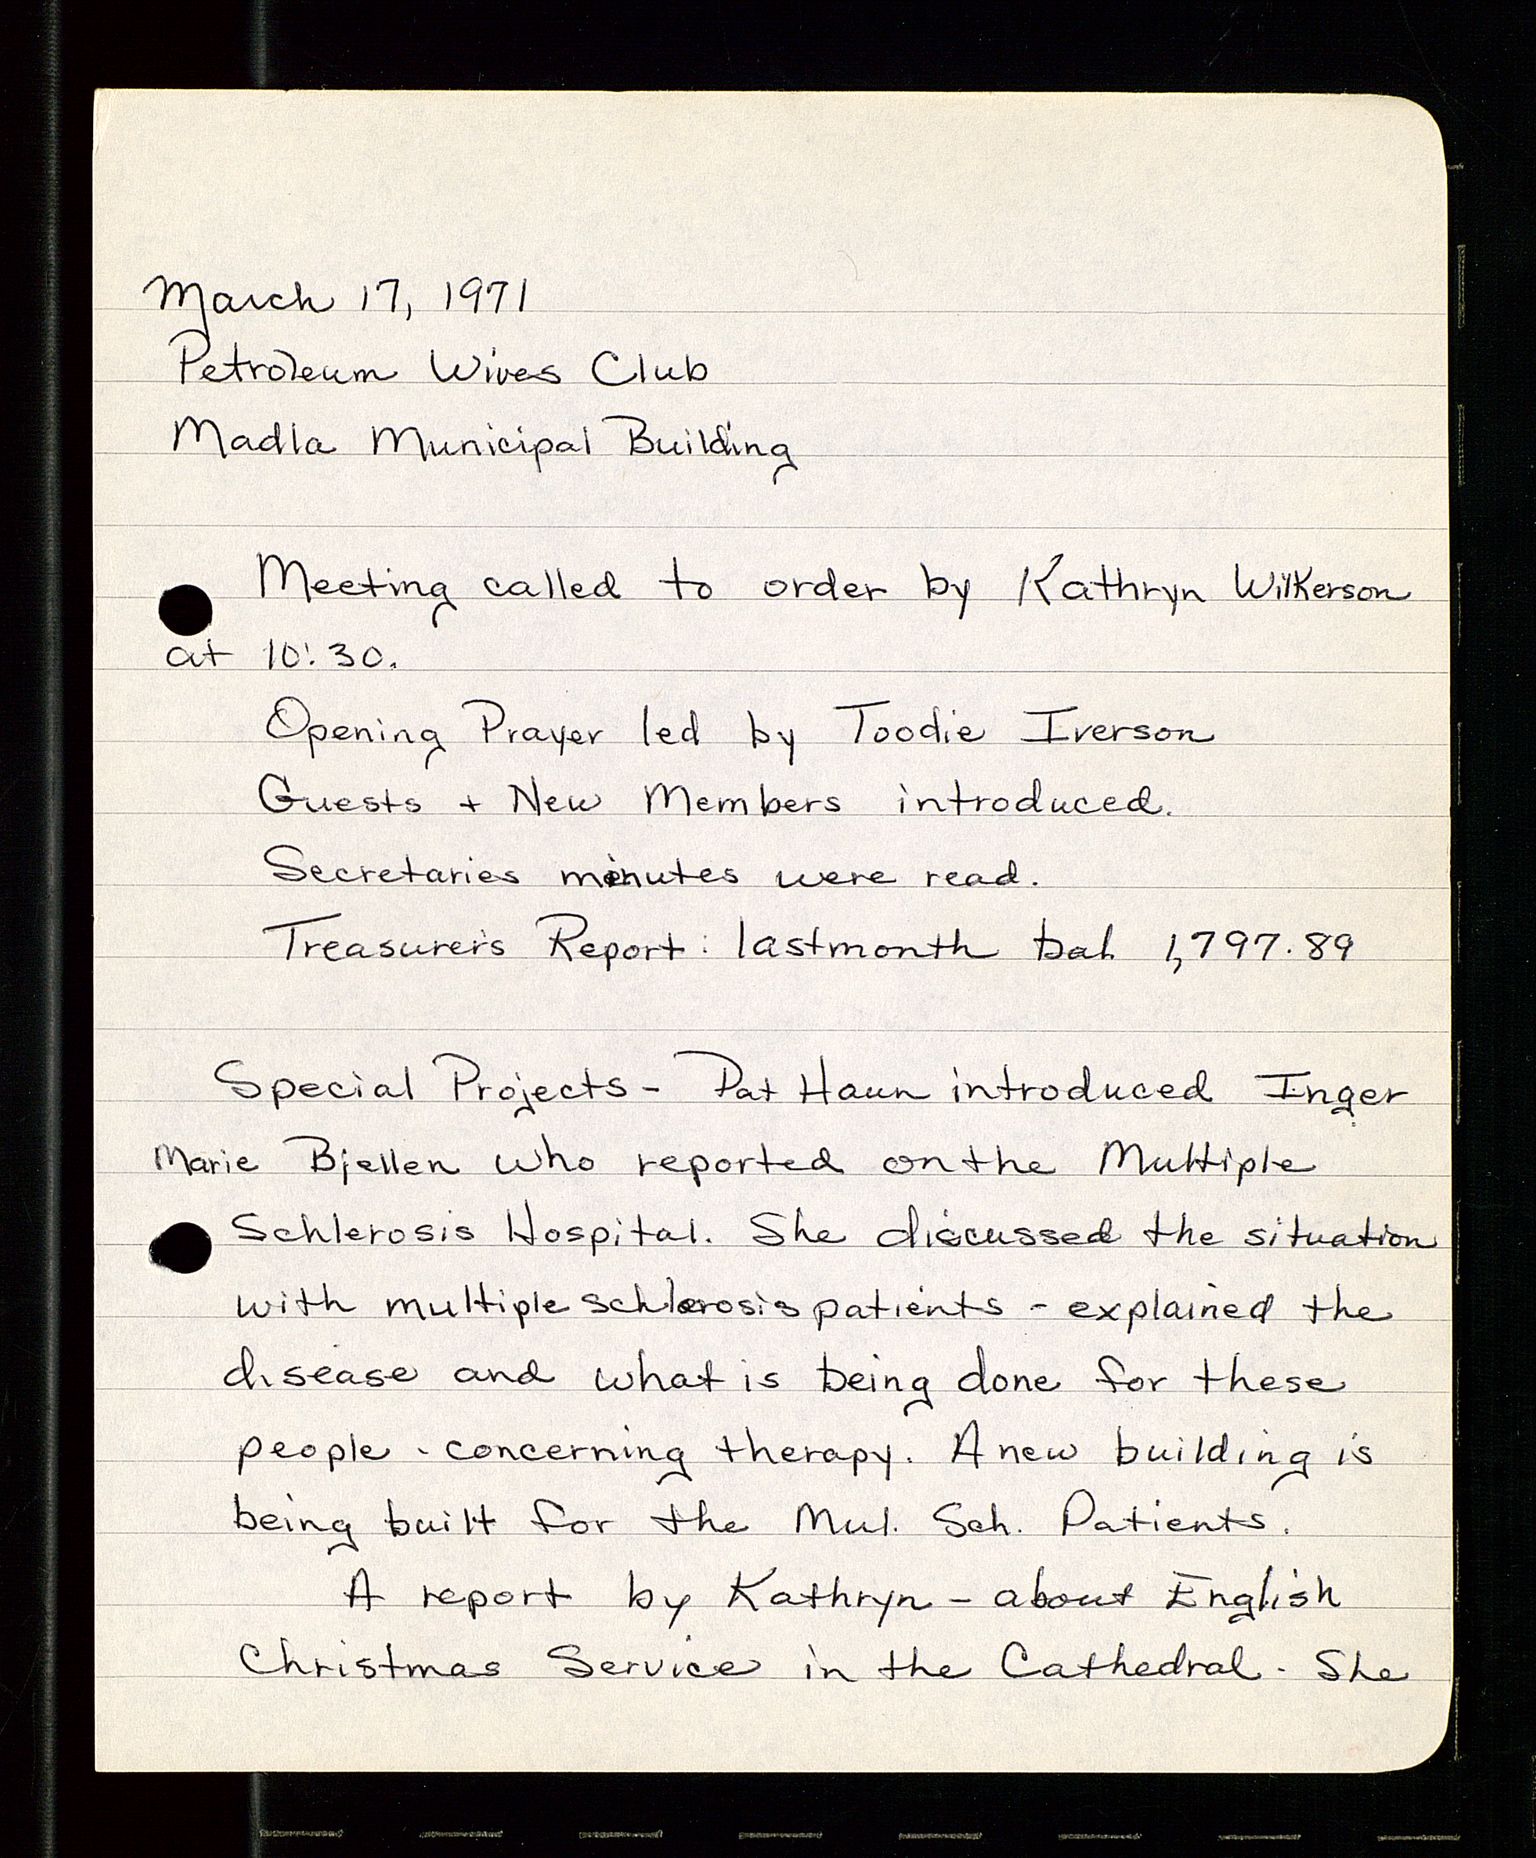 March 17, 1971
Petroleum Wives Club
Madla Municipal Building
Meeting called to order by Kathryn Wilkerson
at 10:30.
Opening Prayer led by Toodie Iverson
Guests + New Members introduced.
Secretaries minutes were read.
Treasurer's Report: last month bal. 1,797.89
Special Projects - Pat Haun introduced Inger
Marie Bjellen who reported on the Multiple
Schlerosis Hospital. She discussed the situation
with multiple schlerosis patients - explained the
disease and what is being done for these
people - concerning therapy. A new building is
being built for the Mul. Sch. Patients.
A report by Kathryn - about English
Christmas Service in the Cathedral. She